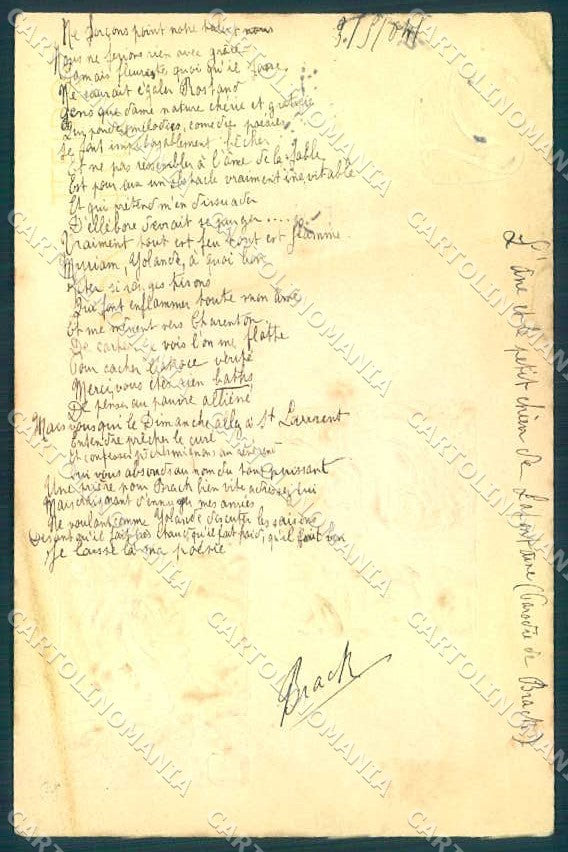 3/5/04
Ne forçons point notre talent nous
Nous ne ferions rien avec grâce
Jamais fleuriste quoi qu'il fasse
Ne saurait égaler Rostand
Gens que dame nature chérie et gratifie
Qui pond mélodies, comédies, poésies
Se font impitoyablement bêcher
Et ne pas ressembler à l'âme de la fable
Est pour eux un obstacle vraiment inévitable
Et qui prétend m'en dissuader
D'ellébore devrait se purger .....
Vraiment tout est feu tout est flamme
Myriam, Yolande, à quoi bon
ces tisons
Qui font enflammer toute mon âme
Et me mènent vers Charenton
De vois l'on me flatte
Pour cacher l'atroce vérité
Merci, vous êtes bien baths
De penser au pauvre alliéné
Mais vous qui le Dimanche allez à St Laurent
Entendre prêcher le curé
Et confesser au révérent
Qui vous absouds au nom du tout puissant
Une prière pour Brack bien vite adressez lui
Mais craignant d'ennuyer mes amies
Ne voulant comme Yolande discuter les saisons
Disant qu'il fait très chaud, qu'il fait froid, qu'il fait bon
Je laisse là ma poésie
Brack
L'âne et le petit chien de Lafontaine (Parodie de Brack)
CARTOLINOMANIA